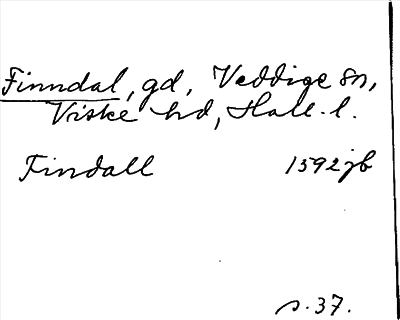 Finndal, gd, Veddige sn,
Viske hd, Hall. l.
Findall 1592 jb
s. 37.